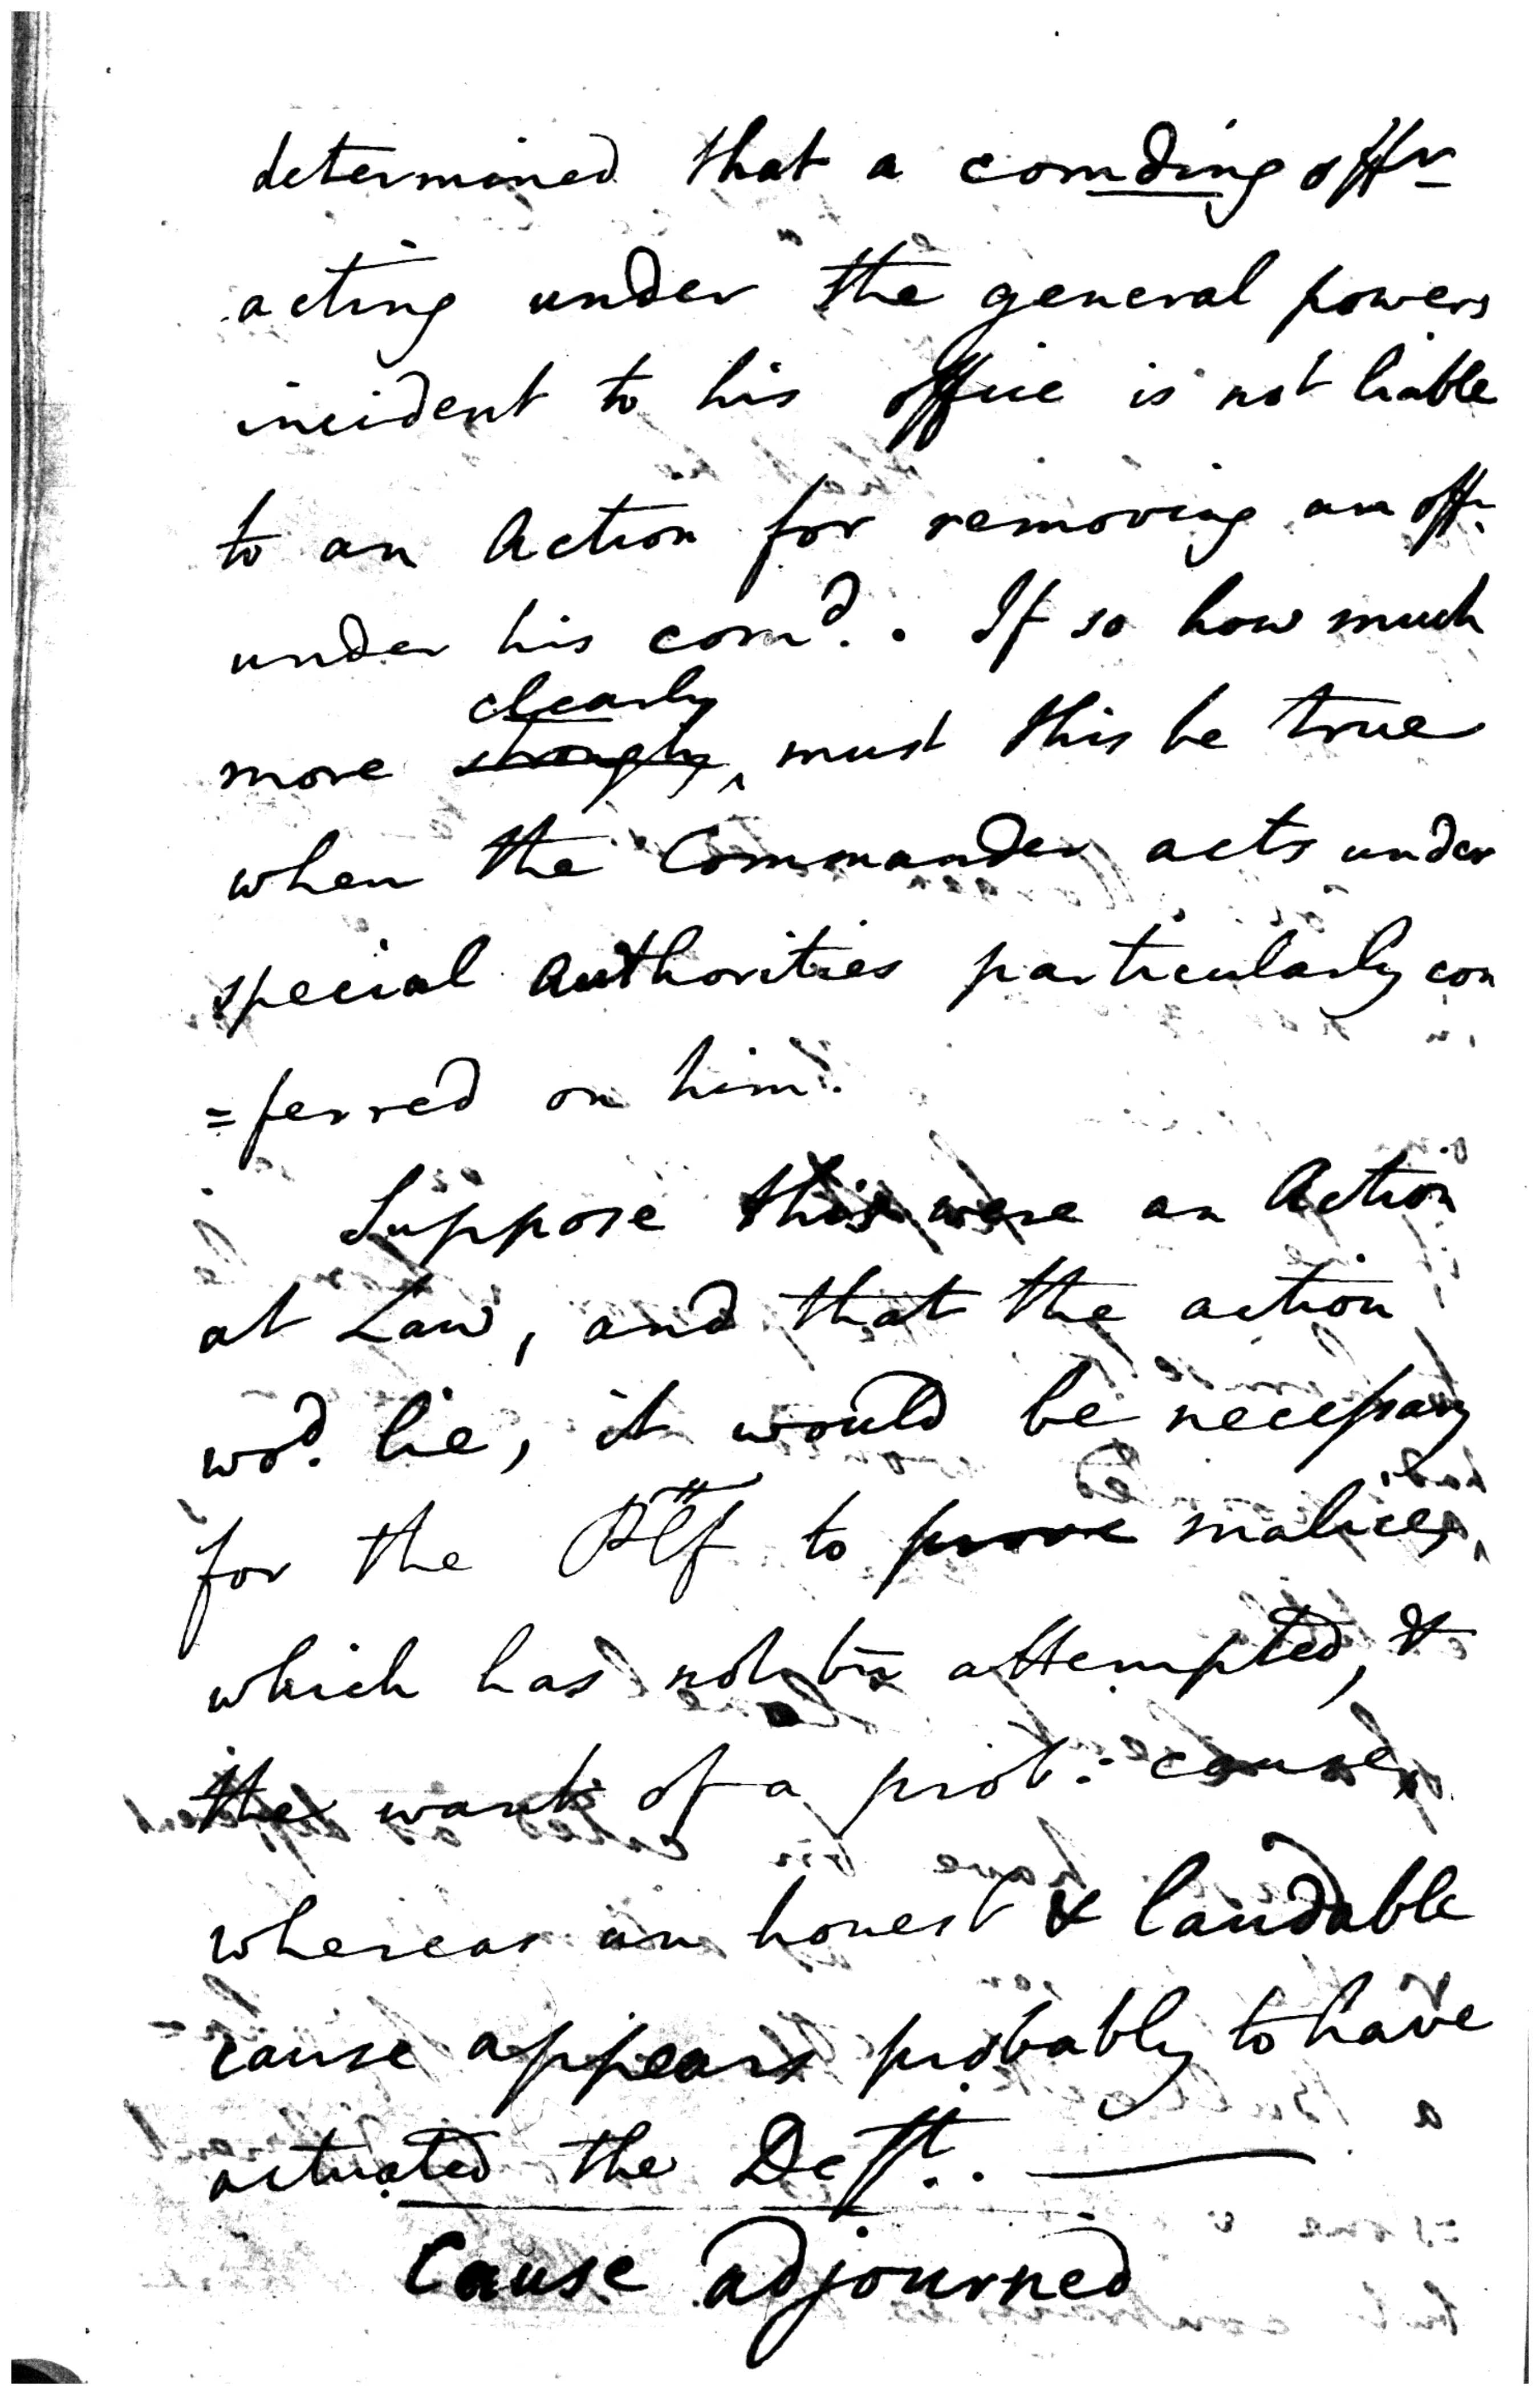 determined that a comding offr
acting under the general powers
incident to his office is not liable
to an Action for removing an offr
under his comd. . If so how much
clearly
more strongly, must this be true
when the Commander acts under
special Authorities particularly con
=ferred on him.
Suppose this were an Action
at Law, and that the action
wod. lie, it would be necessary
for the Pltf to prove malice,
which has not bn attempted, &
the want of a prob: cause,
whereas an honest & laudable
cause appears probably to have
actuated the Deft..
Cause adjourned